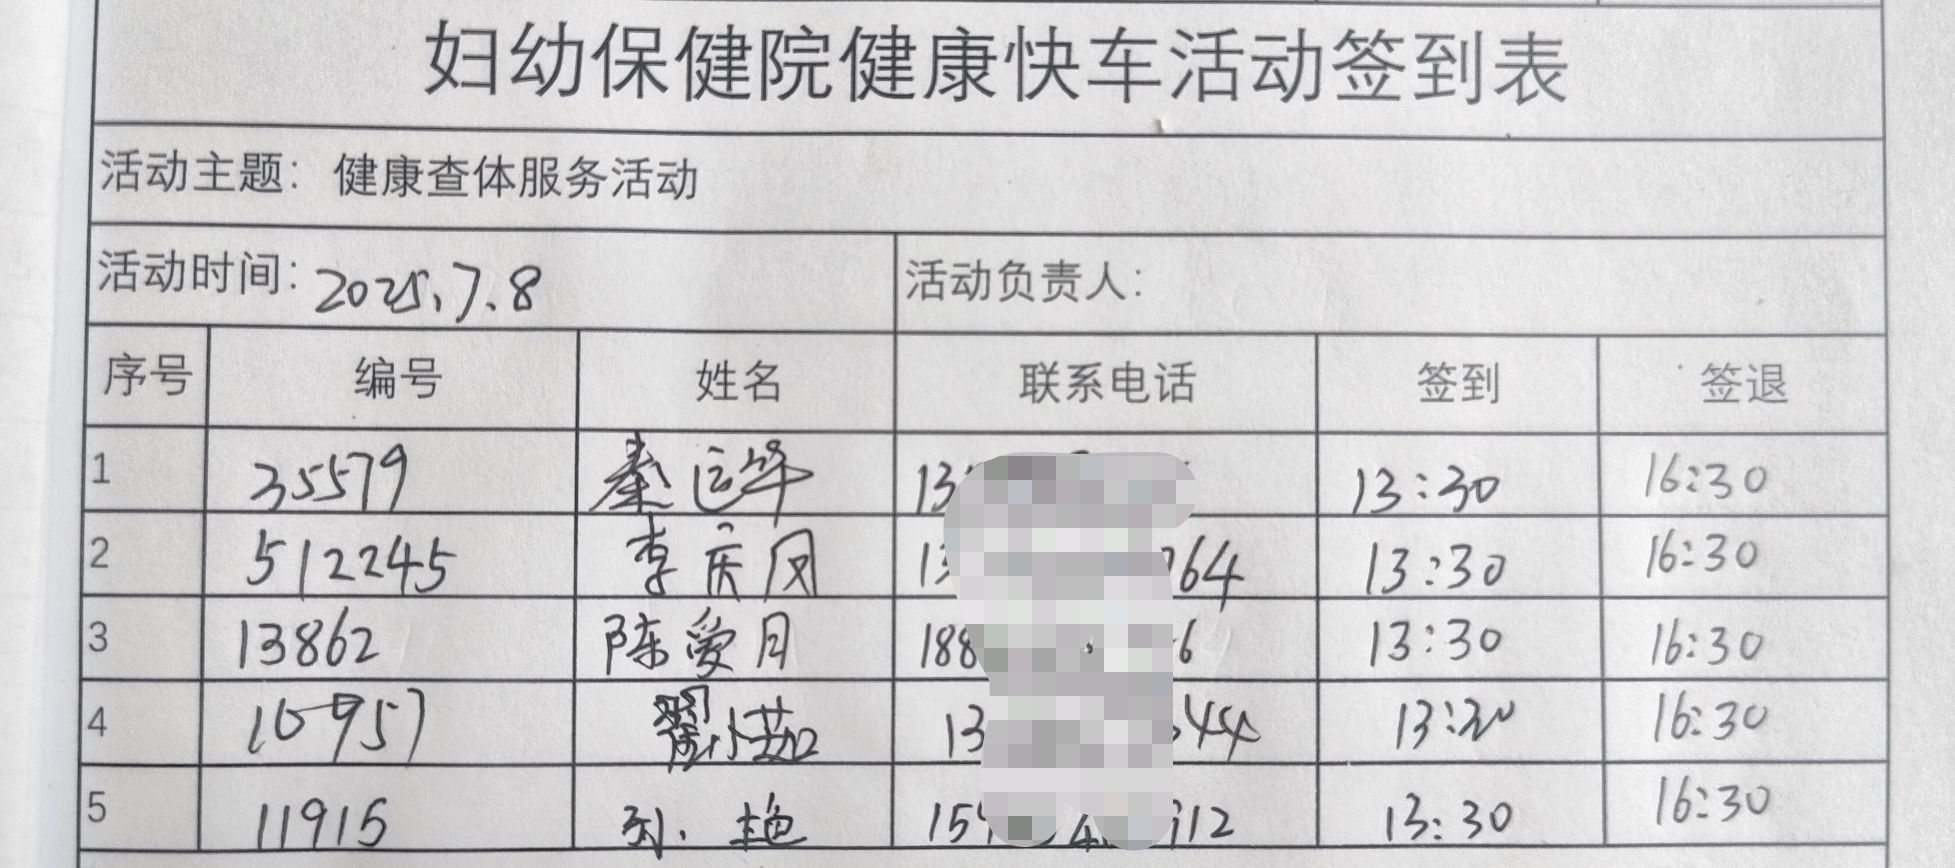 妇幼保健院健康快车活动签到表
活动主题：健康查体服务活动
活动时间：2025.7.8 活动负责人：
序号 编号 姓名 联系电话 签到 签退
1 35579 秦运华 13 13:30 16:30
2 512245 李庆凤 13 64 13:30 16:30
3 13862 陈爱月 188 6 13:30 16:30
4 10957 翟小茹 13 44 13:30 16:30
5 11915 孙艳 15 112 13:30 16:30